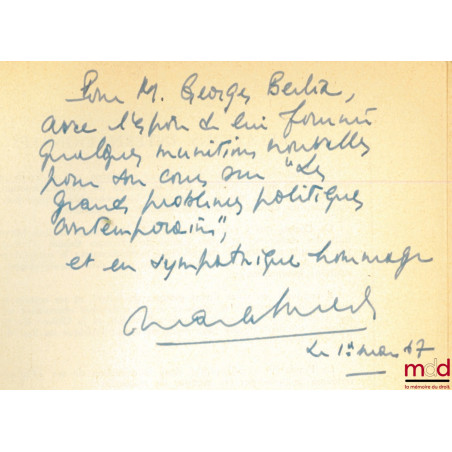 Pour M. Georges Berlia,
avec l'espoir de lui fournir
quelques munitions nouvelles
pour son cours sur "Les
grands problèmes politiques
contemporains",
et en sympathique hommage
Le 1er mai 47
mdd
la mémoire du droit.